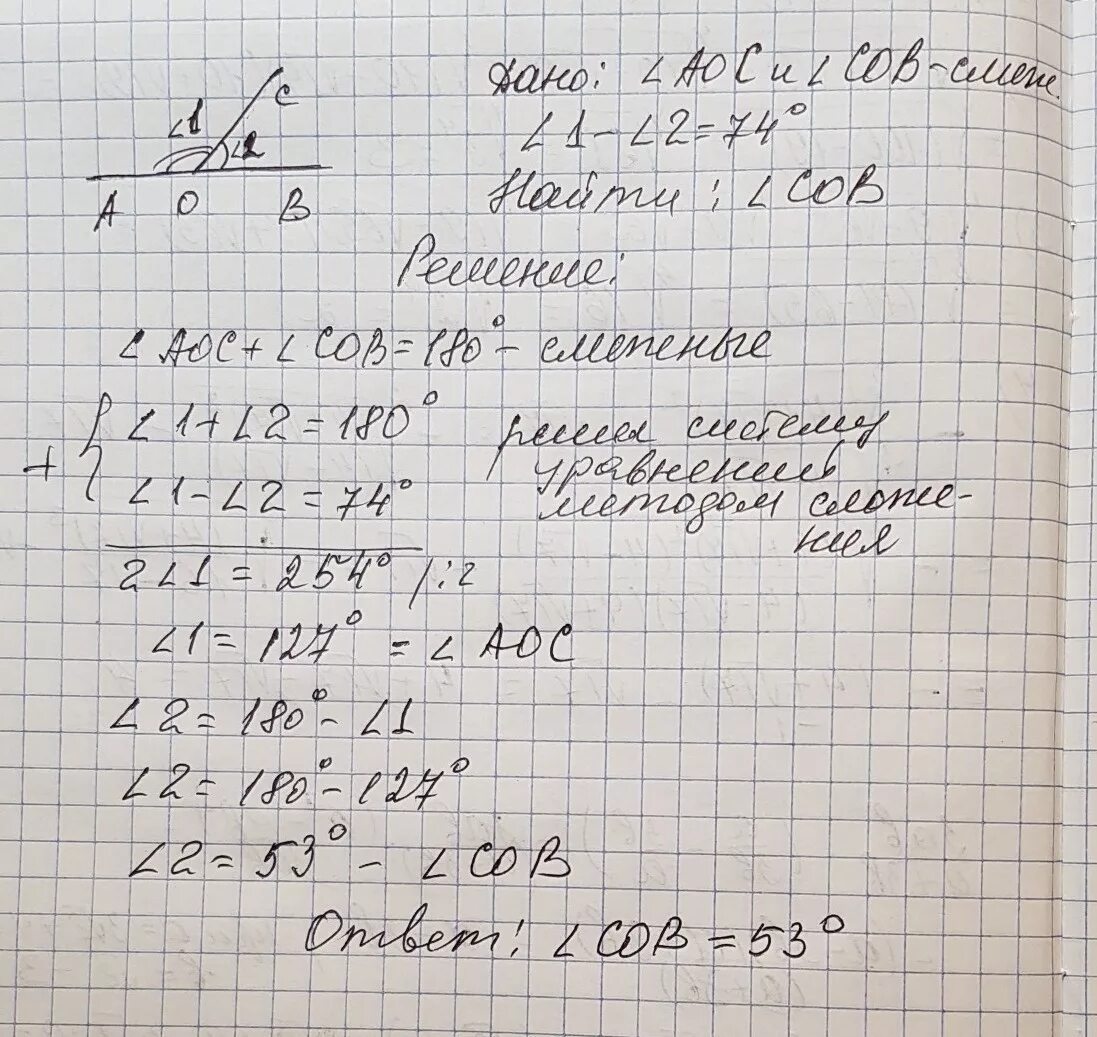 C
∠1
∠2
A O B
Дано: ∠AOC и ∠COB - смеж.
∠1 - ∠2 = 74°
Найти: ∠COB
Решение:
∠AOC + ∠COB = 180° - смежные
+ { ∠1 + ∠2 = 180°
∠1 - ∠2 = 74°
решая систему
уравнений
методом сложе-
ния
2∠1 = 254° /:2
∠1 = 127° = ∠AOC
∠2 = 180° - ∠1
∠2 = 180° - 127°
∠2 = 53° - ∠COB
Ответ: ∠COB = 53°